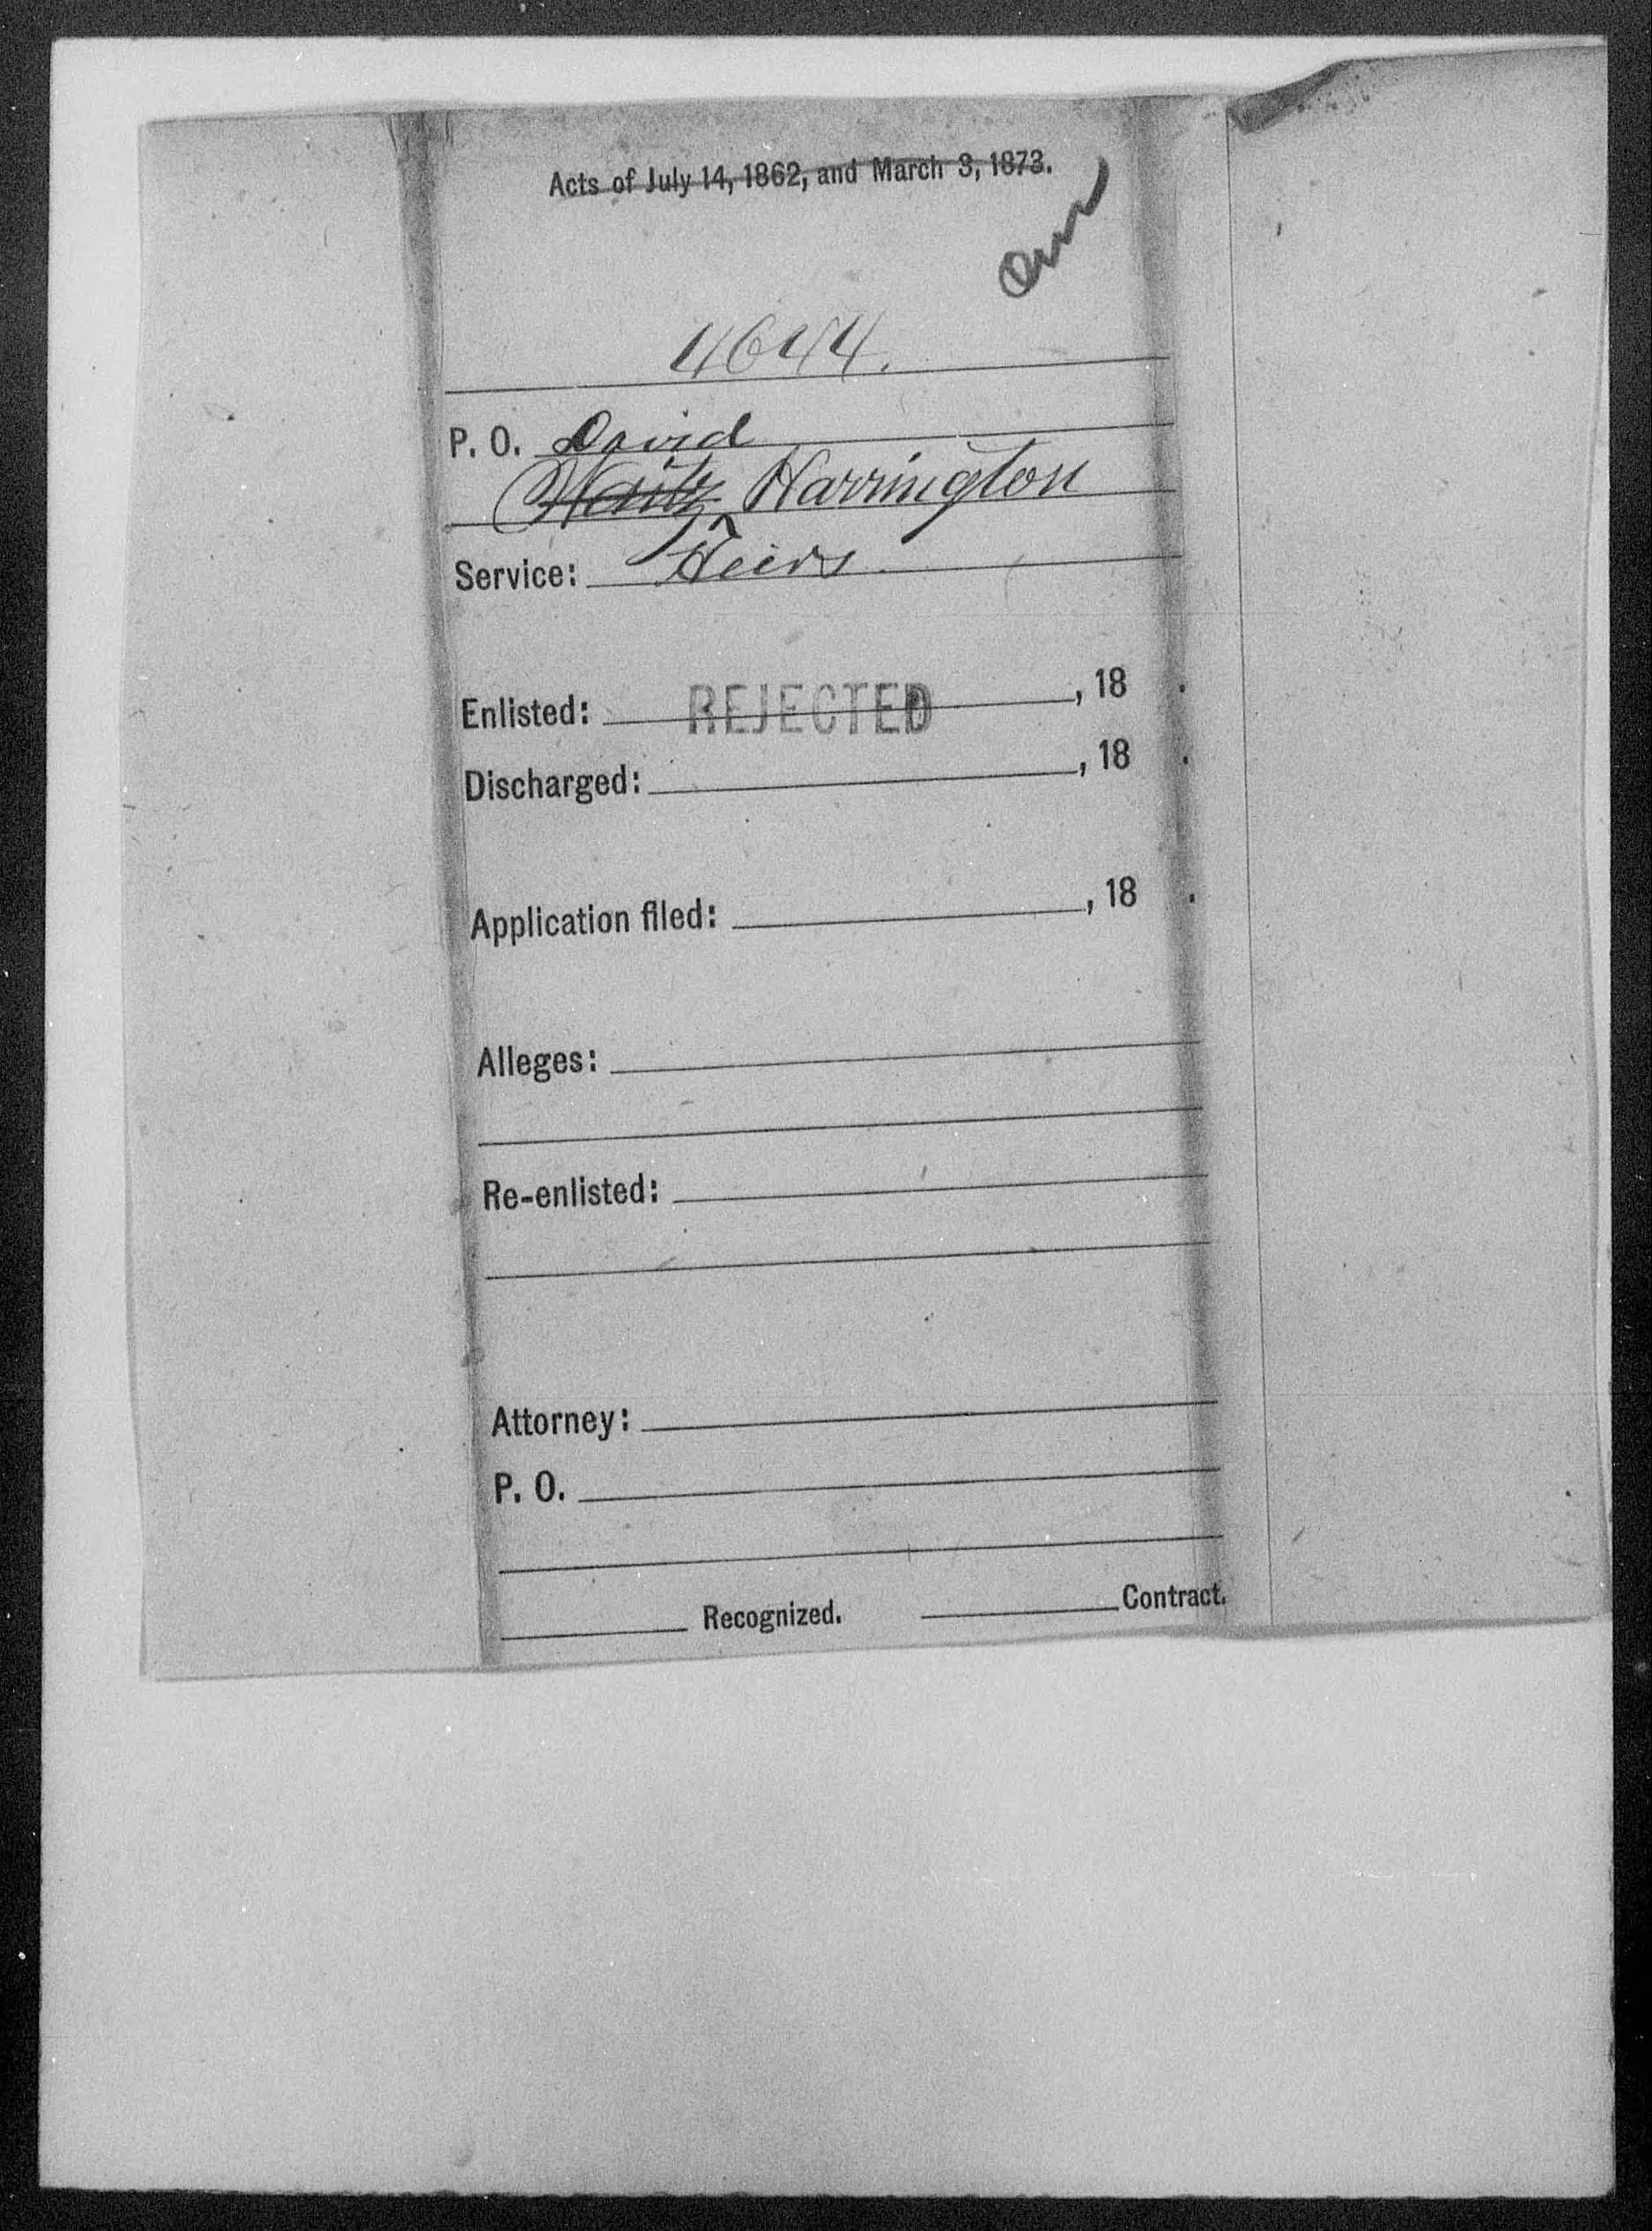 Acts of July 14, 1862, and March 3, 1873.
4644.
P. O. David
Harrington
Service: Heirs
Enlisted: REJECTED , 18 .
Discharged: , 18 .
Application filed: , 18 .
Alleges:
Re-enlisted:
Attorney:
P. O.
Recognized. Contract.